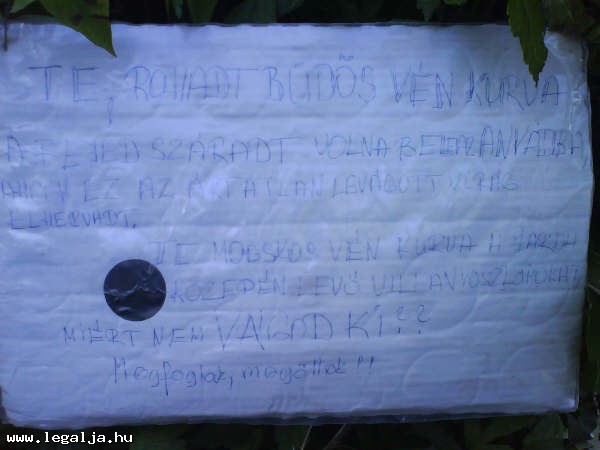 TE, ROHADT BÜDÖS VÉN KURVA
A TEJED SZÁRADT VOLNA BELE AZ ANYÁDBA,
AHOGY EZ AZ ÁRTATLAN LEVÁGOTT VIRÁG
ELHERVADT.
TE MOCSKOS VÉN KURVA A JÁRDA
KÖZEPÉN LEVŐ VILLANYOSZLOPOKAT
MIÉRT NEM VÁGOD KI??
Megfoglak, megöllek!!
www.legalja.hu